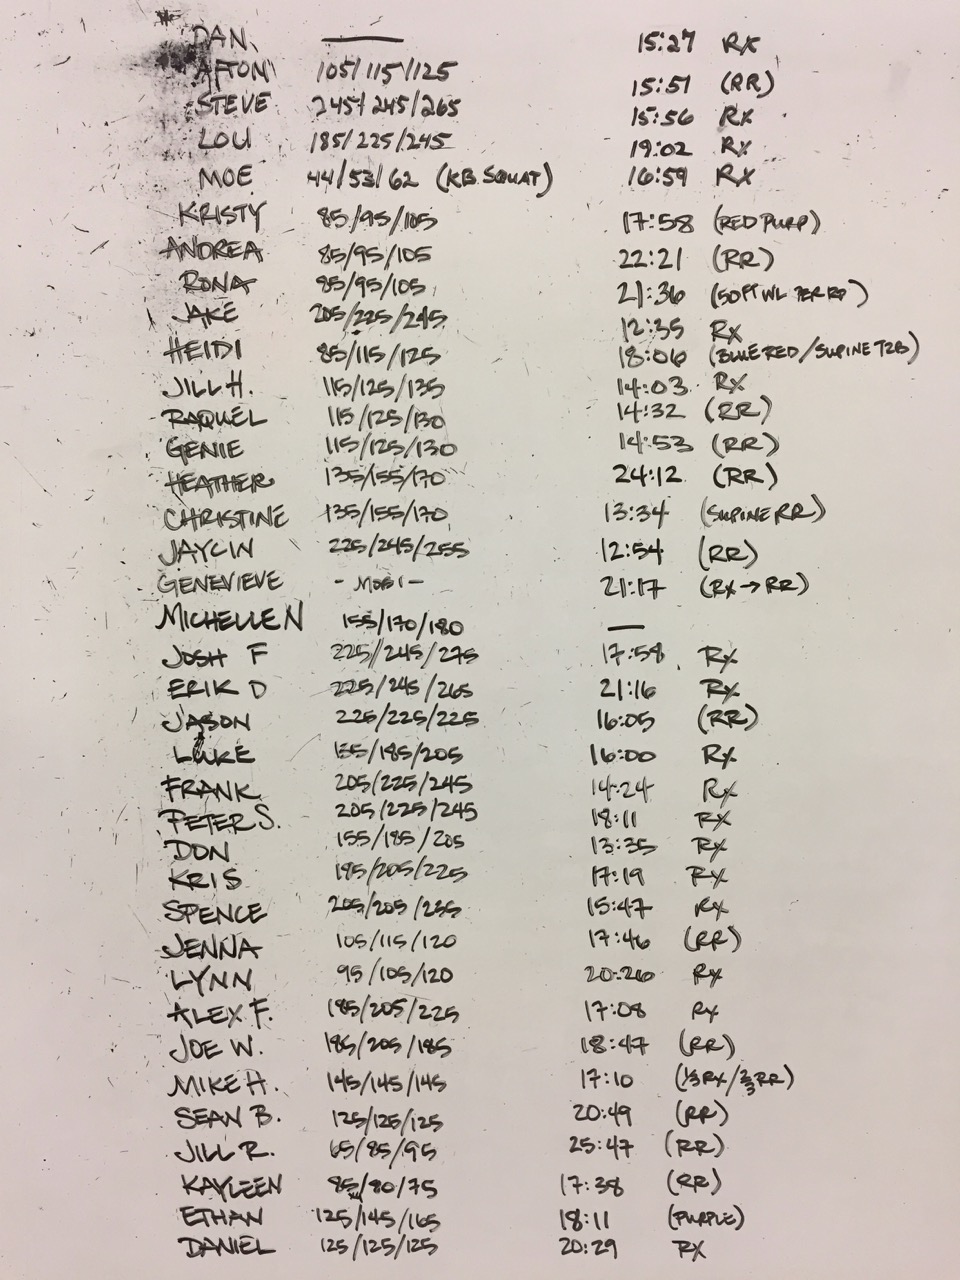 DAN — 15:27 Rx
AFTON 105/115/125 15:51 (RR)
STEVE 245/245/265 15:56 Rx
LOU 185/225/245 19:02 Rx
MOE 44/53/62 (KB SQUAT) 16:59 Rx
KRISTY 85/95/105 17:58 (RED PURP)
ANDREA 85/95/105 22:21 (RR)
RONA 85/95/105 21:36 (50FT WL PER RD)
JAKE 205/225/245 12:35 Rx
HEIDI 85/115/125 18:06 (BLUE RED/SUPINE T2B)
JILL H. 115/125/135 14:03 Rx
RAQUEL 115/125/130 14:32 (RR)
GENIE 115/125/130 14:53 (RR)
HEATHER 135/155/170 24:12 (RR)
CHRISTINE 135/155/170 13:34 (SUPINE RR)
JAYCIN 225/245/255 12:54 (RR)
GENEVIEVE - MOBI - 21:17 (Rx→RR)
MICHELLE N 155/170/180 —
JOSH F 225/245/275 17:58 Rx
ERIK D 225/245/265 21:16 Rx
JASON 225/225/225 16:05 (RR)
LUKE 155/185/205 16:00 Rx
FRANK 205/225/245 14:24 Rx
PETER S. 205/225/245 18:11 Rx
DON 155/185/205 13:35 Rx
KRIS 185/205/225 17:19 Rx
SPENCE 205/205/255 15:47 Rx
JENNA 105/115/120 17:46 (RR)
LYNN 95/105/120 20:26 Rx
ALEX F. 185/205/225 17:08 Rx
JOE W. 185/205/185 18:47 (RR)
MIKE H. 145/145/145 17:10 (⅓Rx/⅔RR)
SEAN B. 125/125/125 20:49 (RR)
JILL R. 65/85/95 25:47 (RR)
KAYLEEN 85/80/75 17:38 (RR)
ETHAN 125/145/165 18:11 (PURPLE)
DANIEL 125/125/125 20:29 Rx